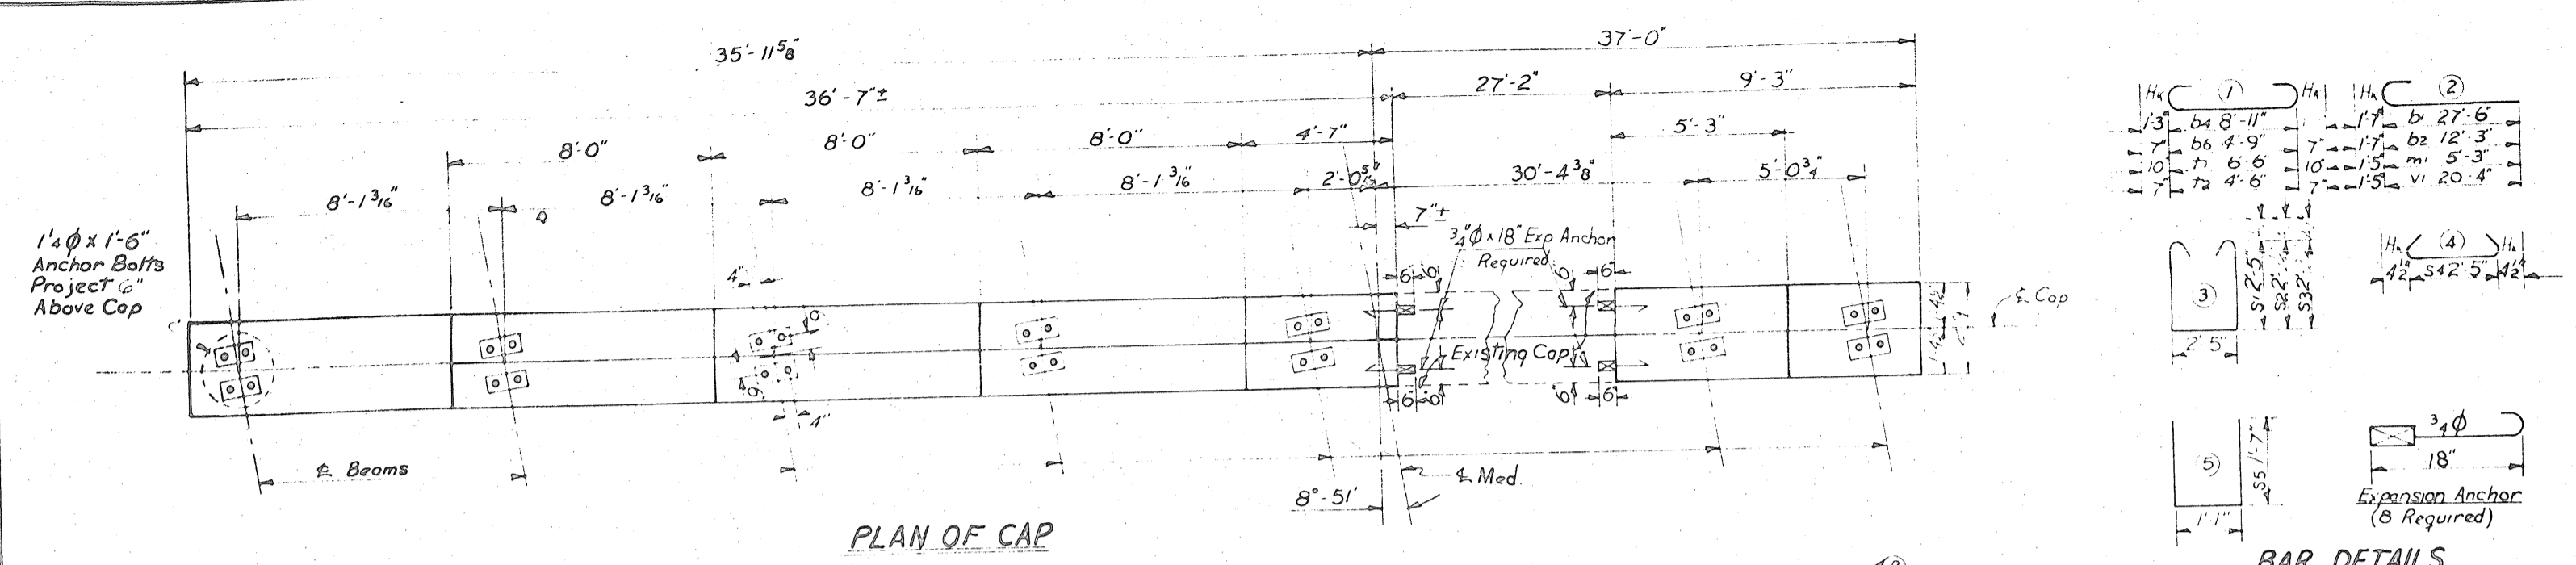 35'-11 5/8"
37'-0"
36'-7"±
27'-2"
9'-3"
8'-0"
8'-0"
8'-0"
4'-7"
5'-3"
8'-1 3/16"
8'-1 3/16"
8'-1 3/16"
8'-1 3/16"
30'-4 3/8"
5'-0 3/4"
7"±
1 1/4 Φ x 1'-6"
Anchor Bolts
Project 6"
Above Cap
3/4"Φ x 18" Exp Anchor
Required
4"
6"
6"
6"
6"
Existing Cap
6"
6"
6"
6"
4"
℄ Cap
℄ Beams
℄ Med.
8°-51'
PLAN OF CAP
Hk 1 Hk
1'-3" b4 8'-11"
7" b6 4'-9" 7"
10" t1 6'-6" 10"
7" t2 4'-6" 7"
Hk 2
1'-7" b1 27'-6"
1'-7" b2 12'-3"
1'-5" m1 5'-3"
1'-5" v1 20'-4"
3
S1 2'-5"
S2 2'
S3 2'
2' 5"
Hk 4 Hk
4 1/2" S4 2'-5" 4 1/2"
5
S5 1'-7"
1' 1"
3/4 Φ
18"
Expansion Anchor
(8 Required)
BAR DETAILS